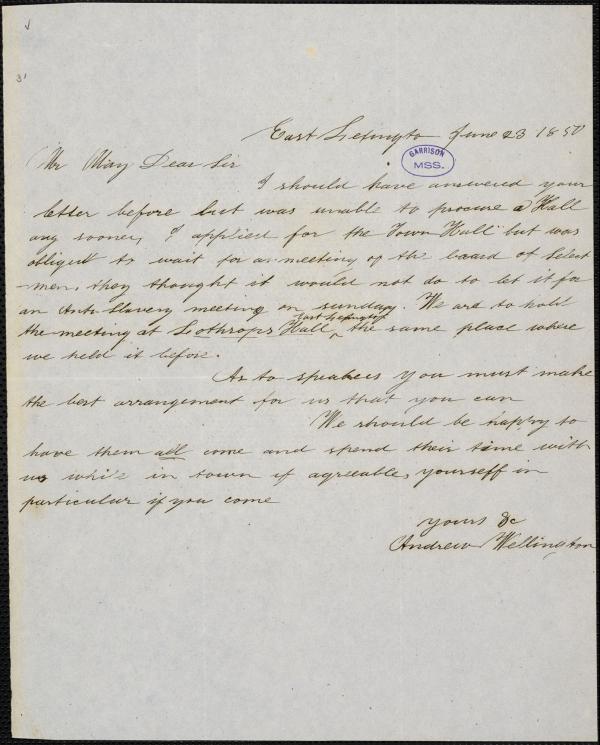 31
East Lexington June 23 1850
GARRISON
MSS.
Mr May Dear Sir
I should have answered your
letter before but was unable to procure a Hall
any sooner, I applied for the Town Hall but was
obliged to wait for a meeting of the board of Select
men, they thought it would not do to let it for
an Anti Slavery meeting on sunday. We are to hold
East Lexington
the meeting at Lothrops Hall ^ the same place where
we held it before.
As to speakers you must make
the best arrangement for us that you can
We should be happy to
have them all come and spend their time with
us while in town if agreeable, yourself in
particular if you come
yours &c
Andrew Wellington